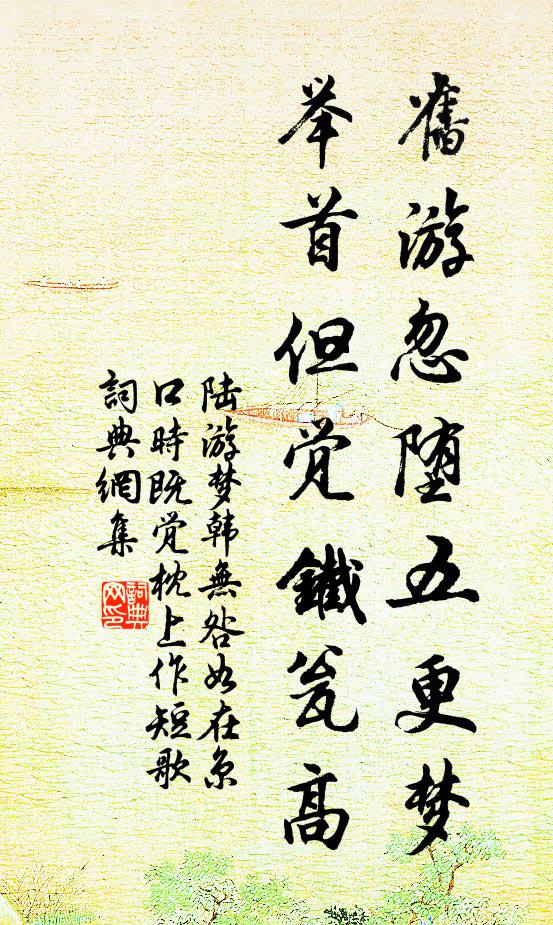 舊游忽堕五更梦
举首但觉鐵瓮高
陆游梦韩無咎如在京
口時既觉枕上作短歌
詞典網集
詞典
网印